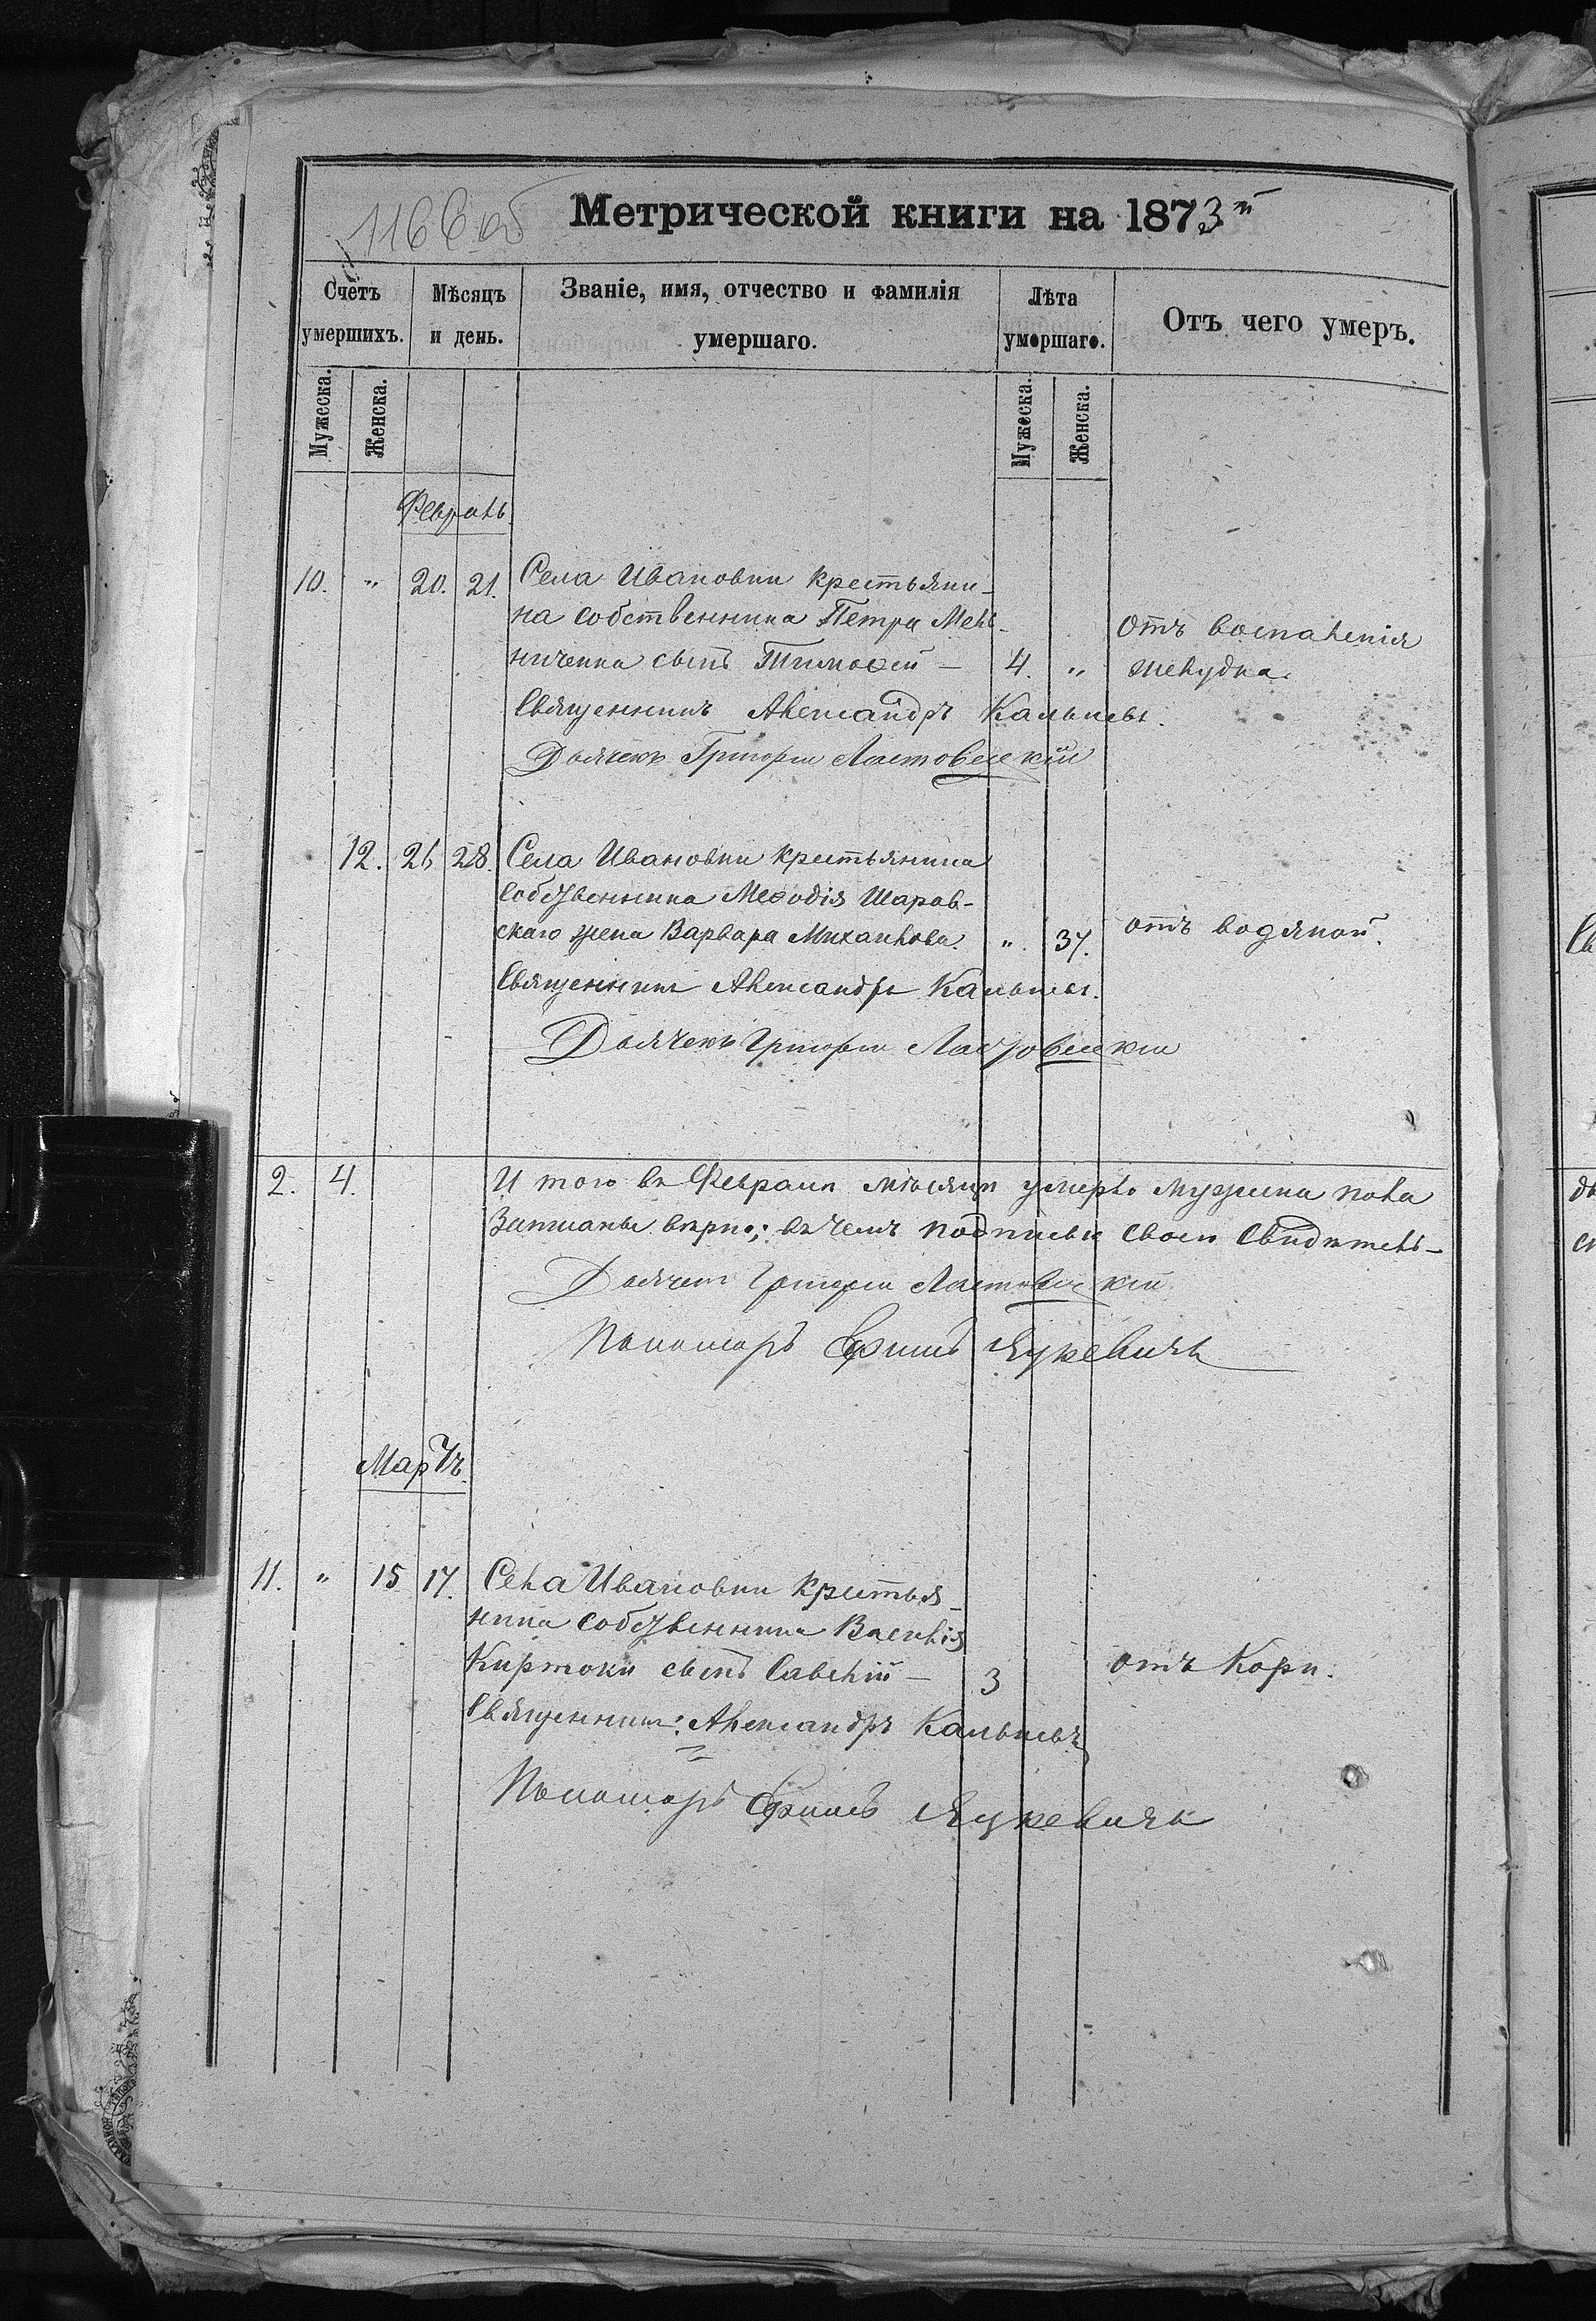 116 об
Метрической книги на 1873й
Счетъ умершихъ.
Мѣсяцъ и день.
Званіе, имя, отчество и фамилія умершаго.
Лѣта умершаго.
Отъ чего умеръ.
Мужеска.
Женска.
Мужеска.
Женска.
Февраль.
10. " 20. 21. Села Ивановки крестьяни-
на собственника Петра Мель-
ниченка сынъ Тимоѳей — 4. "
отъ воспаленія
желудка.
Священникъ Александръ
Дьячекъ Григорій Ластовецкій
12. 26 28. Села Ивановки крестьянина
собственника Меѳодія Шаров-
скаго жена Варвара Михаилова. " 37. отъ водяной.
Священникъ Александръ
Дьячекъ Григорій Ластовецкій
2. 4. И того въ Февралѣ мѣсяцѣ умерло мужеска пола
Записаны вѣрно; въ чемъ подписью своею свидѣтель-
Дьячекъ Григорій Ластовецкій
Пономарь Ефимъ Яцкевичъ
Мартъ.
11. " 15 17. Села Ивановки крестья-
нина собственника Василія
Киртоки сынъ Савелій — 3 отъ Кори.
Священникъ: Александръ
Пономарь Ефимъ Яцкевичъ